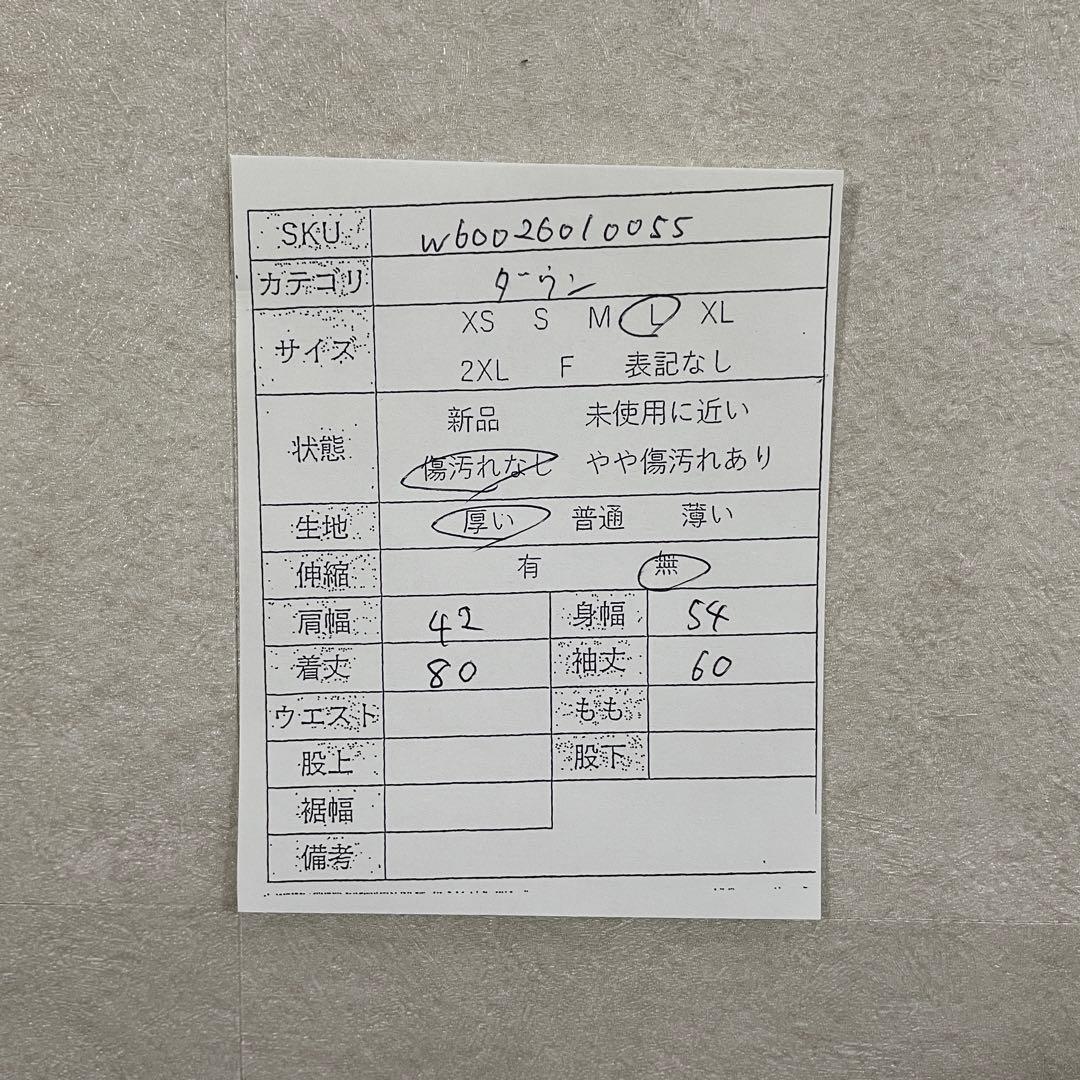 SKU w60026010055
カテゴリ ダウン
サイズ XS S M L XL
2XL F 表記なし
状態 新品 未使用に近い
傷汚れなし やや傷汚れあり
生地 厚い 普通 薄い
伸縮 有 無
肩幅 42 身幅 54
着丈 80 袖丈 60
ウエスト もも
股上 股下
裾幅
備考